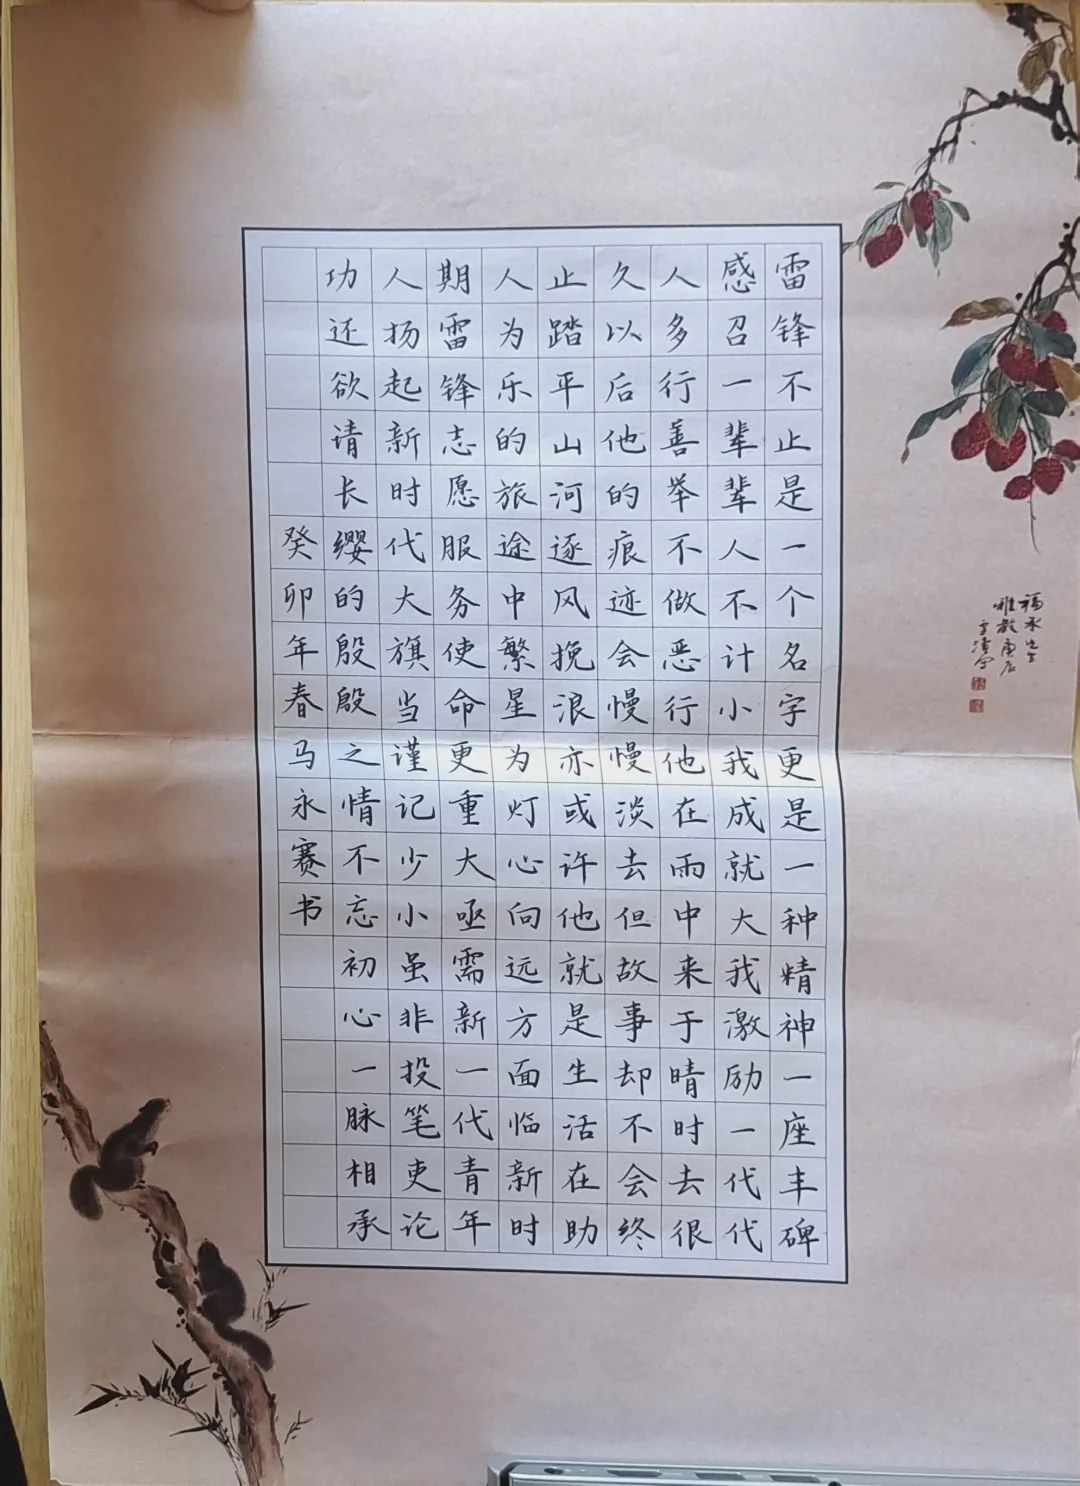 雷锋不止是一个名字更是一种精神一座丰碑
感召一辈辈人不计小我成就大我激励一代代
人多行善举不做恶行他在雨中来于晴时去很
久以后他的痕迹会慢慢淡去但故事却不会终
止踏平山河逐风挽浪亦或许他就是生活在助
人为乐的旅途中繁星为灯心向远方面临新时
期雷锋志愿服务使命更重大亟需新一代青年
人扬起新时代大旗当谨记少小虽非投笔吏论
功还欲请长缨的殷殷之情不忘初心一脉相承
癸卯年春马永赛书